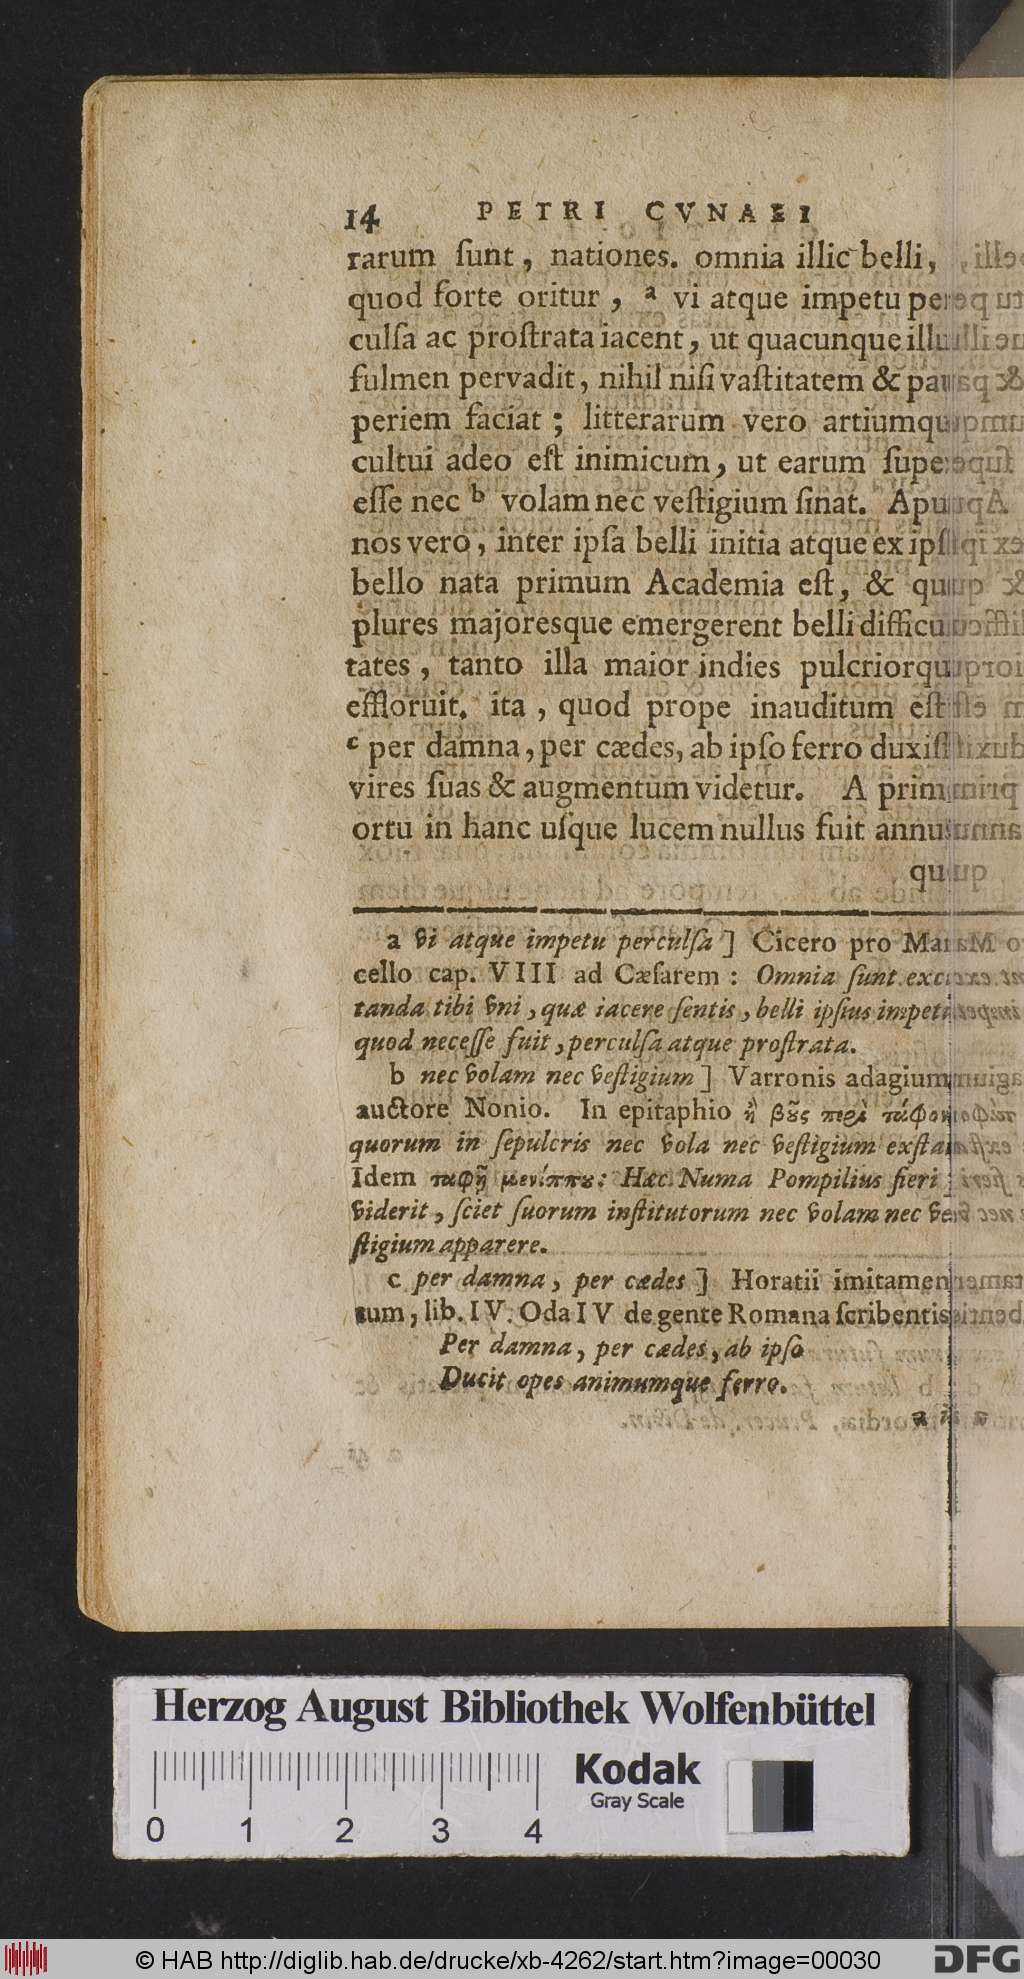 14 PETRI CVNAEI
rarum ſunt, nationes. omnia illic belli,
quod forte oritur, a vi atque impetu per
culſa ac proſtrata iacent, ut quacunque illu
fulmen pervadit, nihil niſi vaſtitatem & pau
periem faciat; litterarum vero artiumqu
cultui adeo eſt inimicum, ut earum ſupe
eſſe nec b volam nec veſtigium ſinat. Apu
nos vero, inter ipſa belli initia atque ex ipſ
bello nata primum Academia eſt, & qu
plures majoresque emergerent belli difficu
tates, tanto illa maior indies pulcriorqu
effloruit. ita, quod prope inauditum eſt
c per damna, per cædes, ab ipſo ferro duxiſ
vires ſuas & augmentum videtur. A prim
ortu in hanc uſque lucem nullus fuit annu
qu
a vi atque impetu perculſa] Cicero pro Mar
cello cap. VIII ad Cæſarem: Omnia ſunt exci
tanda tibi vni, quæ iacere ſentis, belli ipſius impet
quod neceſſe fuit, perculſa atque proſtrata.
b nec volam nec veſtigium] Varronis adagium
auctore Nonio. In epitaphio ἢ βοῦς περὶ τάφον
quorum in ſepulcris nec vola nec veſtigium exſta
Idem ταφῇ μενίππου: Hæc Numa Pompilius fieri
viderit, ſciet ſuorum inſtitutorum nec volam nec ve
ſtigium apparere.
c per damna, per cædes] Horatii imitamen
tum, lib. IV. Oda IV de gente Romana ſcribentis
Per damna, per cædes, ab ipſo
Ducit opes animumque ferro.
Herzog August Bibliothek Wolfenbüttel
Kodak
Gray Scale
0 1 2 3 4
© HAB http://diglib.hab.de/drucke/xb-4262/start.htm?image=00030
DFG